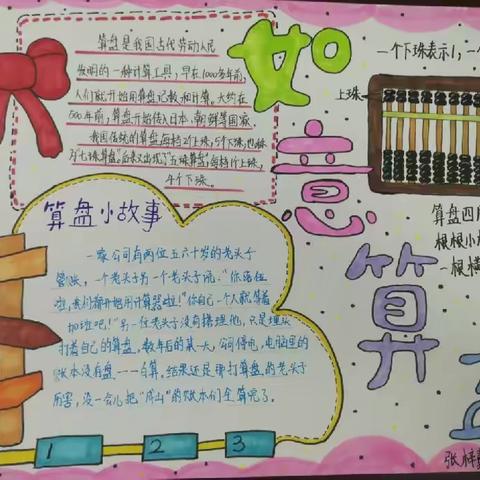 算盘是我国古代劳动人民
发明的一种计算工具,早在1000多年前,
人们就开始用算盘记数和计算。大约在
500年前,算盘开始传入日本、朝鲜等国家。
我国传统的算盘每档2个上珠,5个下珠,也称
为"七珠算盘"。后来又出现了"五珠算盘",每档1个上珠,
4个下珠。
如
意
算
盘
一个下珠表示1,一个
上珠
算盘四
根根小
一根横
算盘小故事
一家公司有两位五六十岁的老头子
管账,一个老头子另一个老头子说,"你落伍
啦,我们都开始用计算器啦!"你自己一个人就等着
加班吧!"另一位老头子没有搭理他,只是埋头
打着自己的算盘,数年后的某一天,公司停电,电脑里的
账本没有盘一一合算,结果还是那打算盘的老头子
厉害,没一会儿把"成山"的账本们全算完了。
1
2
3
张梓